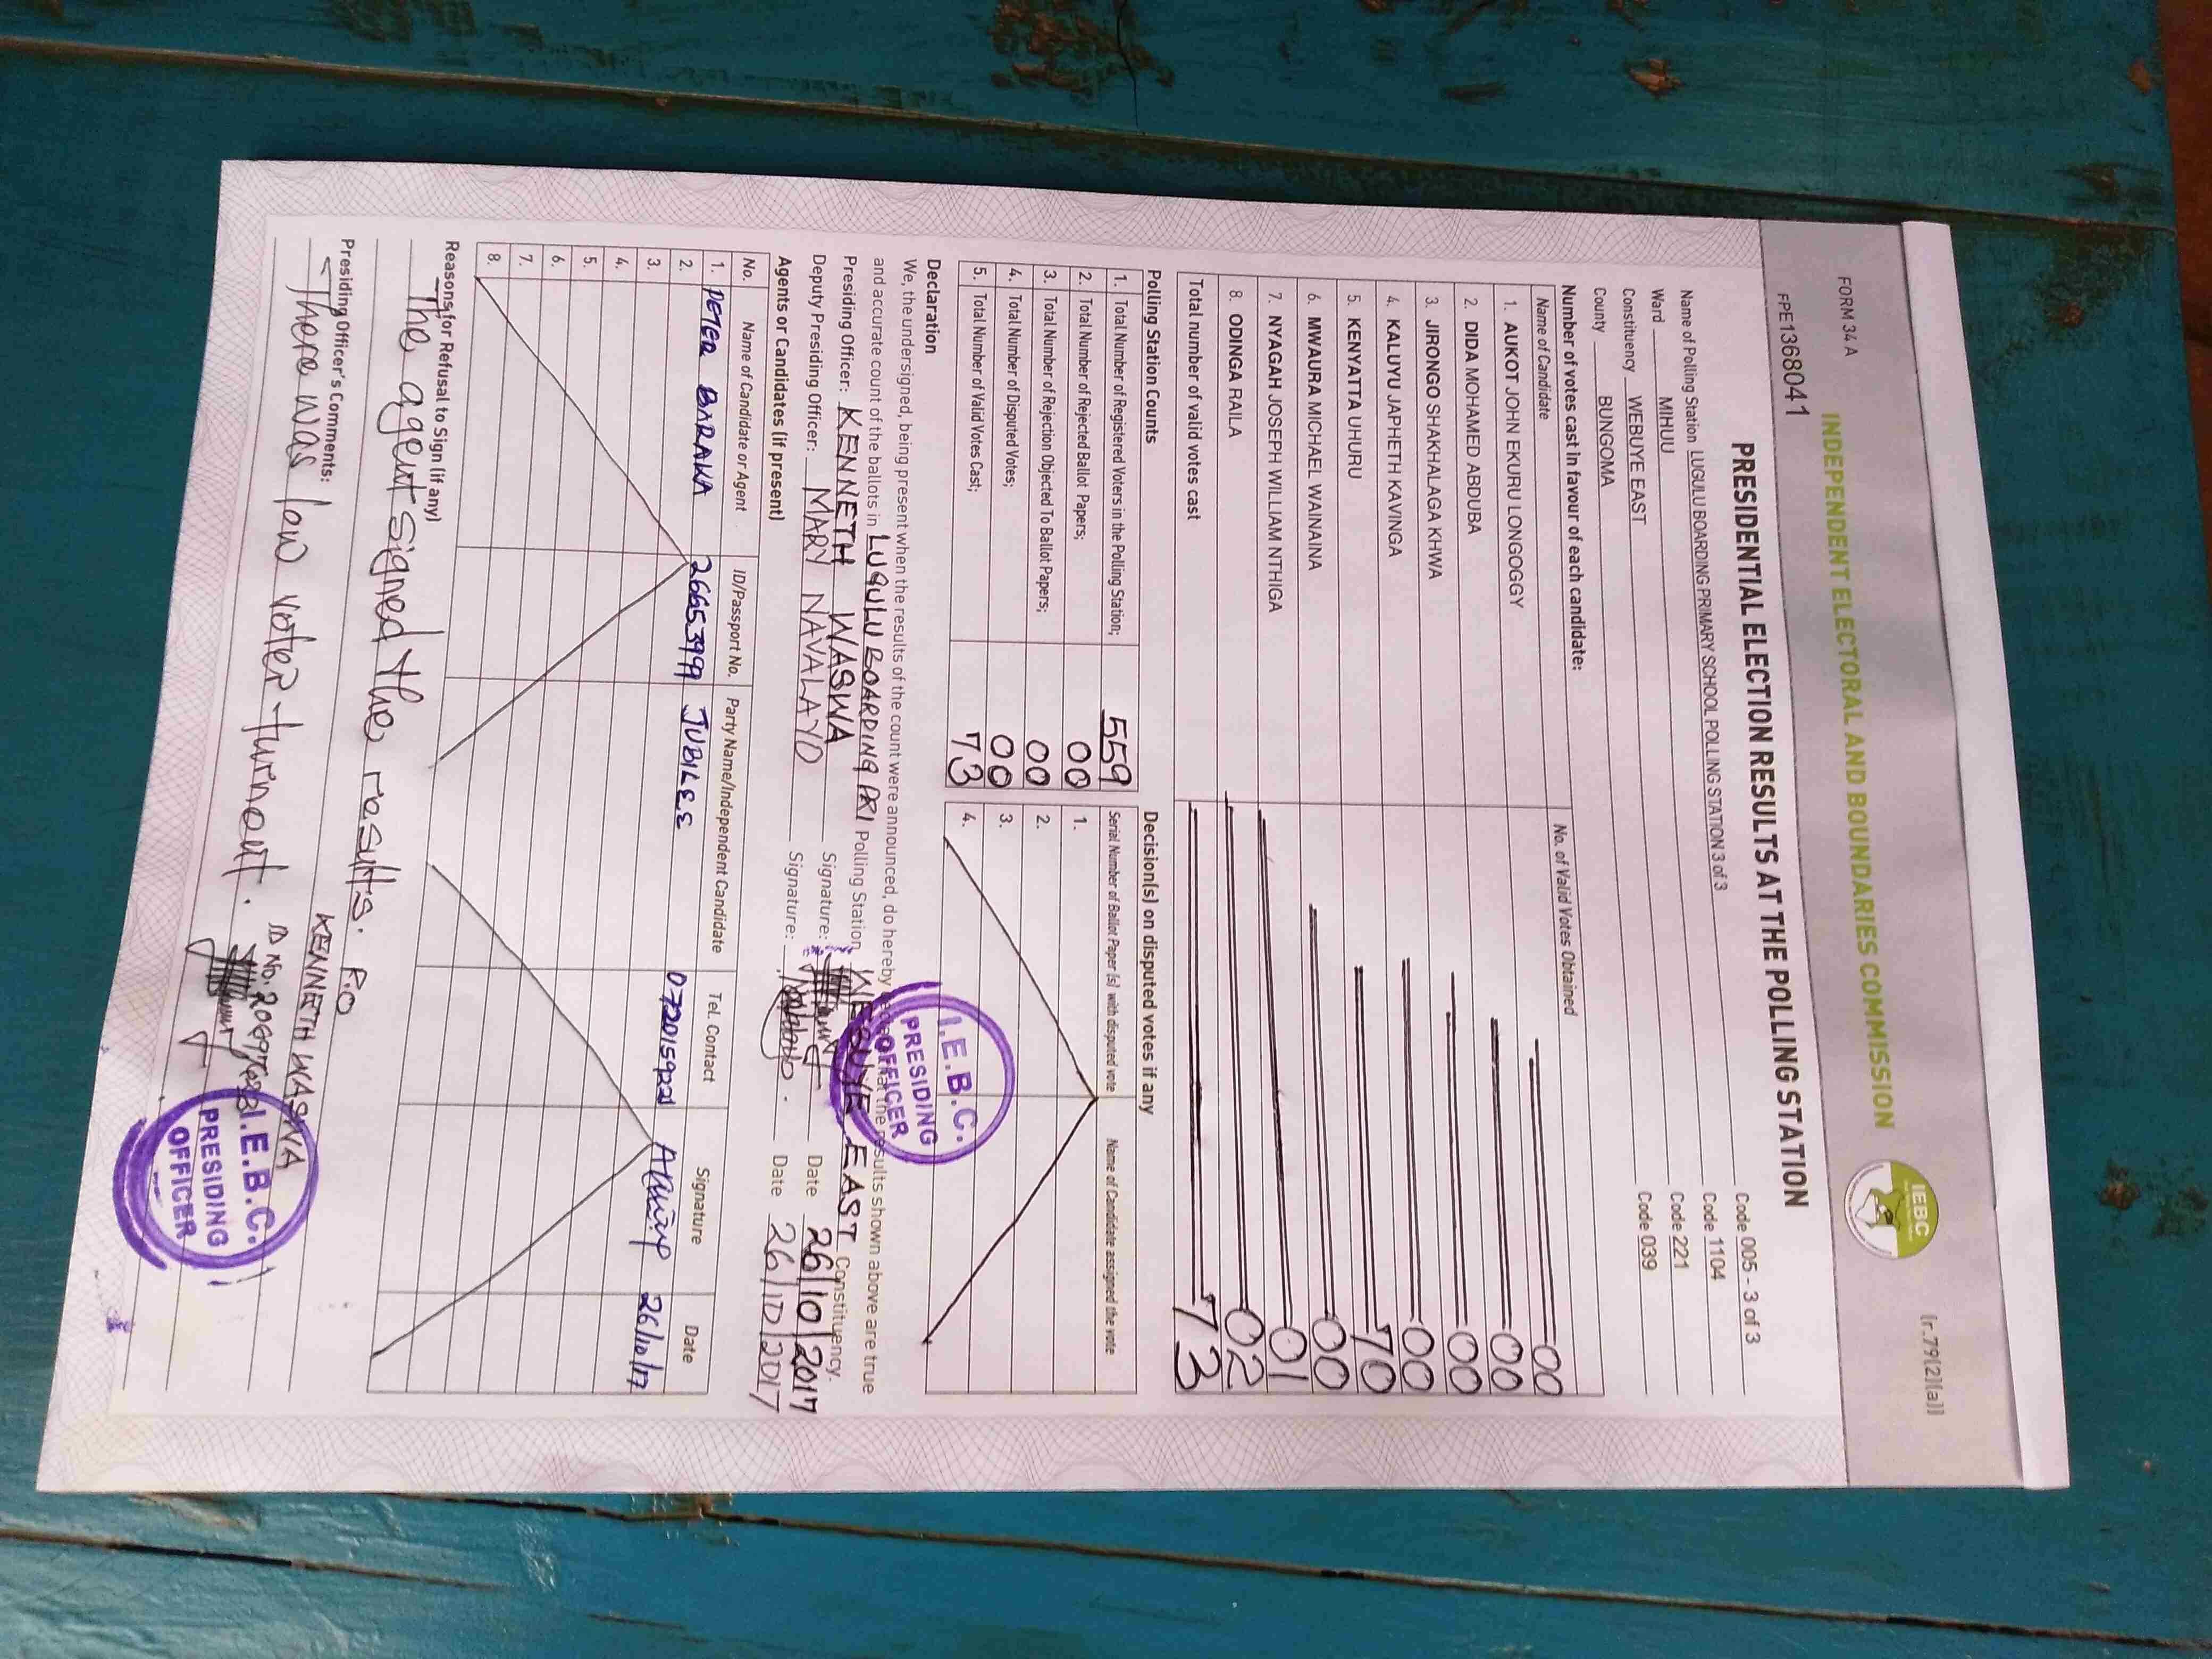 FORM 34 A
(r.79(2)(a))
INDEPENDENT ELECTORAL AND BOUNDARIES COMMISSION
IEBC
FPE1368041
PRESIDENTIAL ELECTION RESULTS AT THE POLLING STATION
Name of Polling Station LUGULU BOARDING PRIMARY SCHOOL POLLING STATION 3 of 3 Code 005 - 3 of 3
Ward MIHUU Code 1104
Constituency WEBUYE EAST Code 221
County BUNGOMA Code 039
Number of votes cast in favour of each candidate:
Name of Candidate No. of Valid Votes Obtained
1. AUKOT JOHN EKURU LONGOGGY 00
2. DIDA MOHAMED ABDUBA 00
3. JIRONGO SHAKHALAGA KHWA 00
4. KALUYU JAPHETH KAVINGA 00
5. KENYATTA UHURU 70
6. MWAURA MICHAEL WAINAINA 00
7. NYAGAH JOSEPH WILLIAM NTHIGA 01
8. ODINGA RAILA 02
Total number of valid votes cast 73
Polling Station Counts
1. Total Number of Registered Voters in the Polling Station; 559
2. Total Number of Rejected Ballot Papers; 00
3. Total Number of Rejection Objected To Ballot Papers; 00
4. Total Number of Disputed Votes; 00
5. Total Number of Valid Votes Cast; 73
Decision(s) on disputed votes if any
Serial Number of Ballot Paper (s) with disputed vote Name of Candidate assigned the vote
1.
2.
3.
4.
I.E.B.C.
PRESIDING
OFFICER
Declaration
We, the undersigned, being present when the results of the count were announced, do hereby the results shown above are true
and accurate count of the ballots in LUGULU BOARDING PRI Polling Station WEBUYE EAST Constituency.
Presiding Officer: KENNETH WASWA Signature: Date 26/10/2017
Deputy Presiding Officer: MARY NAVALAYO Signature: Date 26/10/2017
Agents or Candidates (if present)
No. Name of Candidate or Agent ID/Passport No. Party Name/Independent Candidate Tel. Contact Signature Date
1. PETER BARAKA 26653999 JUBILEE 0720159221 26/10/17
2.
3.
4.
5.
6.
7.
8.
Reasons for Refusal to Sign (if any)
The agent signed the results.
Presiding Officer's Comments:
There was low voter turnout.
P.O
KENNETH WASWA
ID No.
I.E.B.C.
PRESIDING
OFFICER